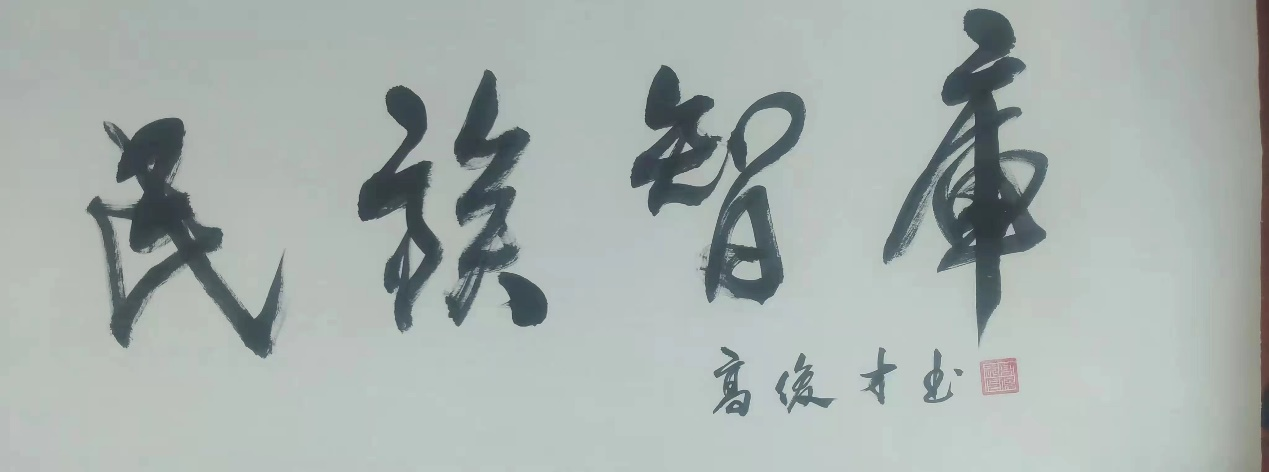 民族智库
高俊才书